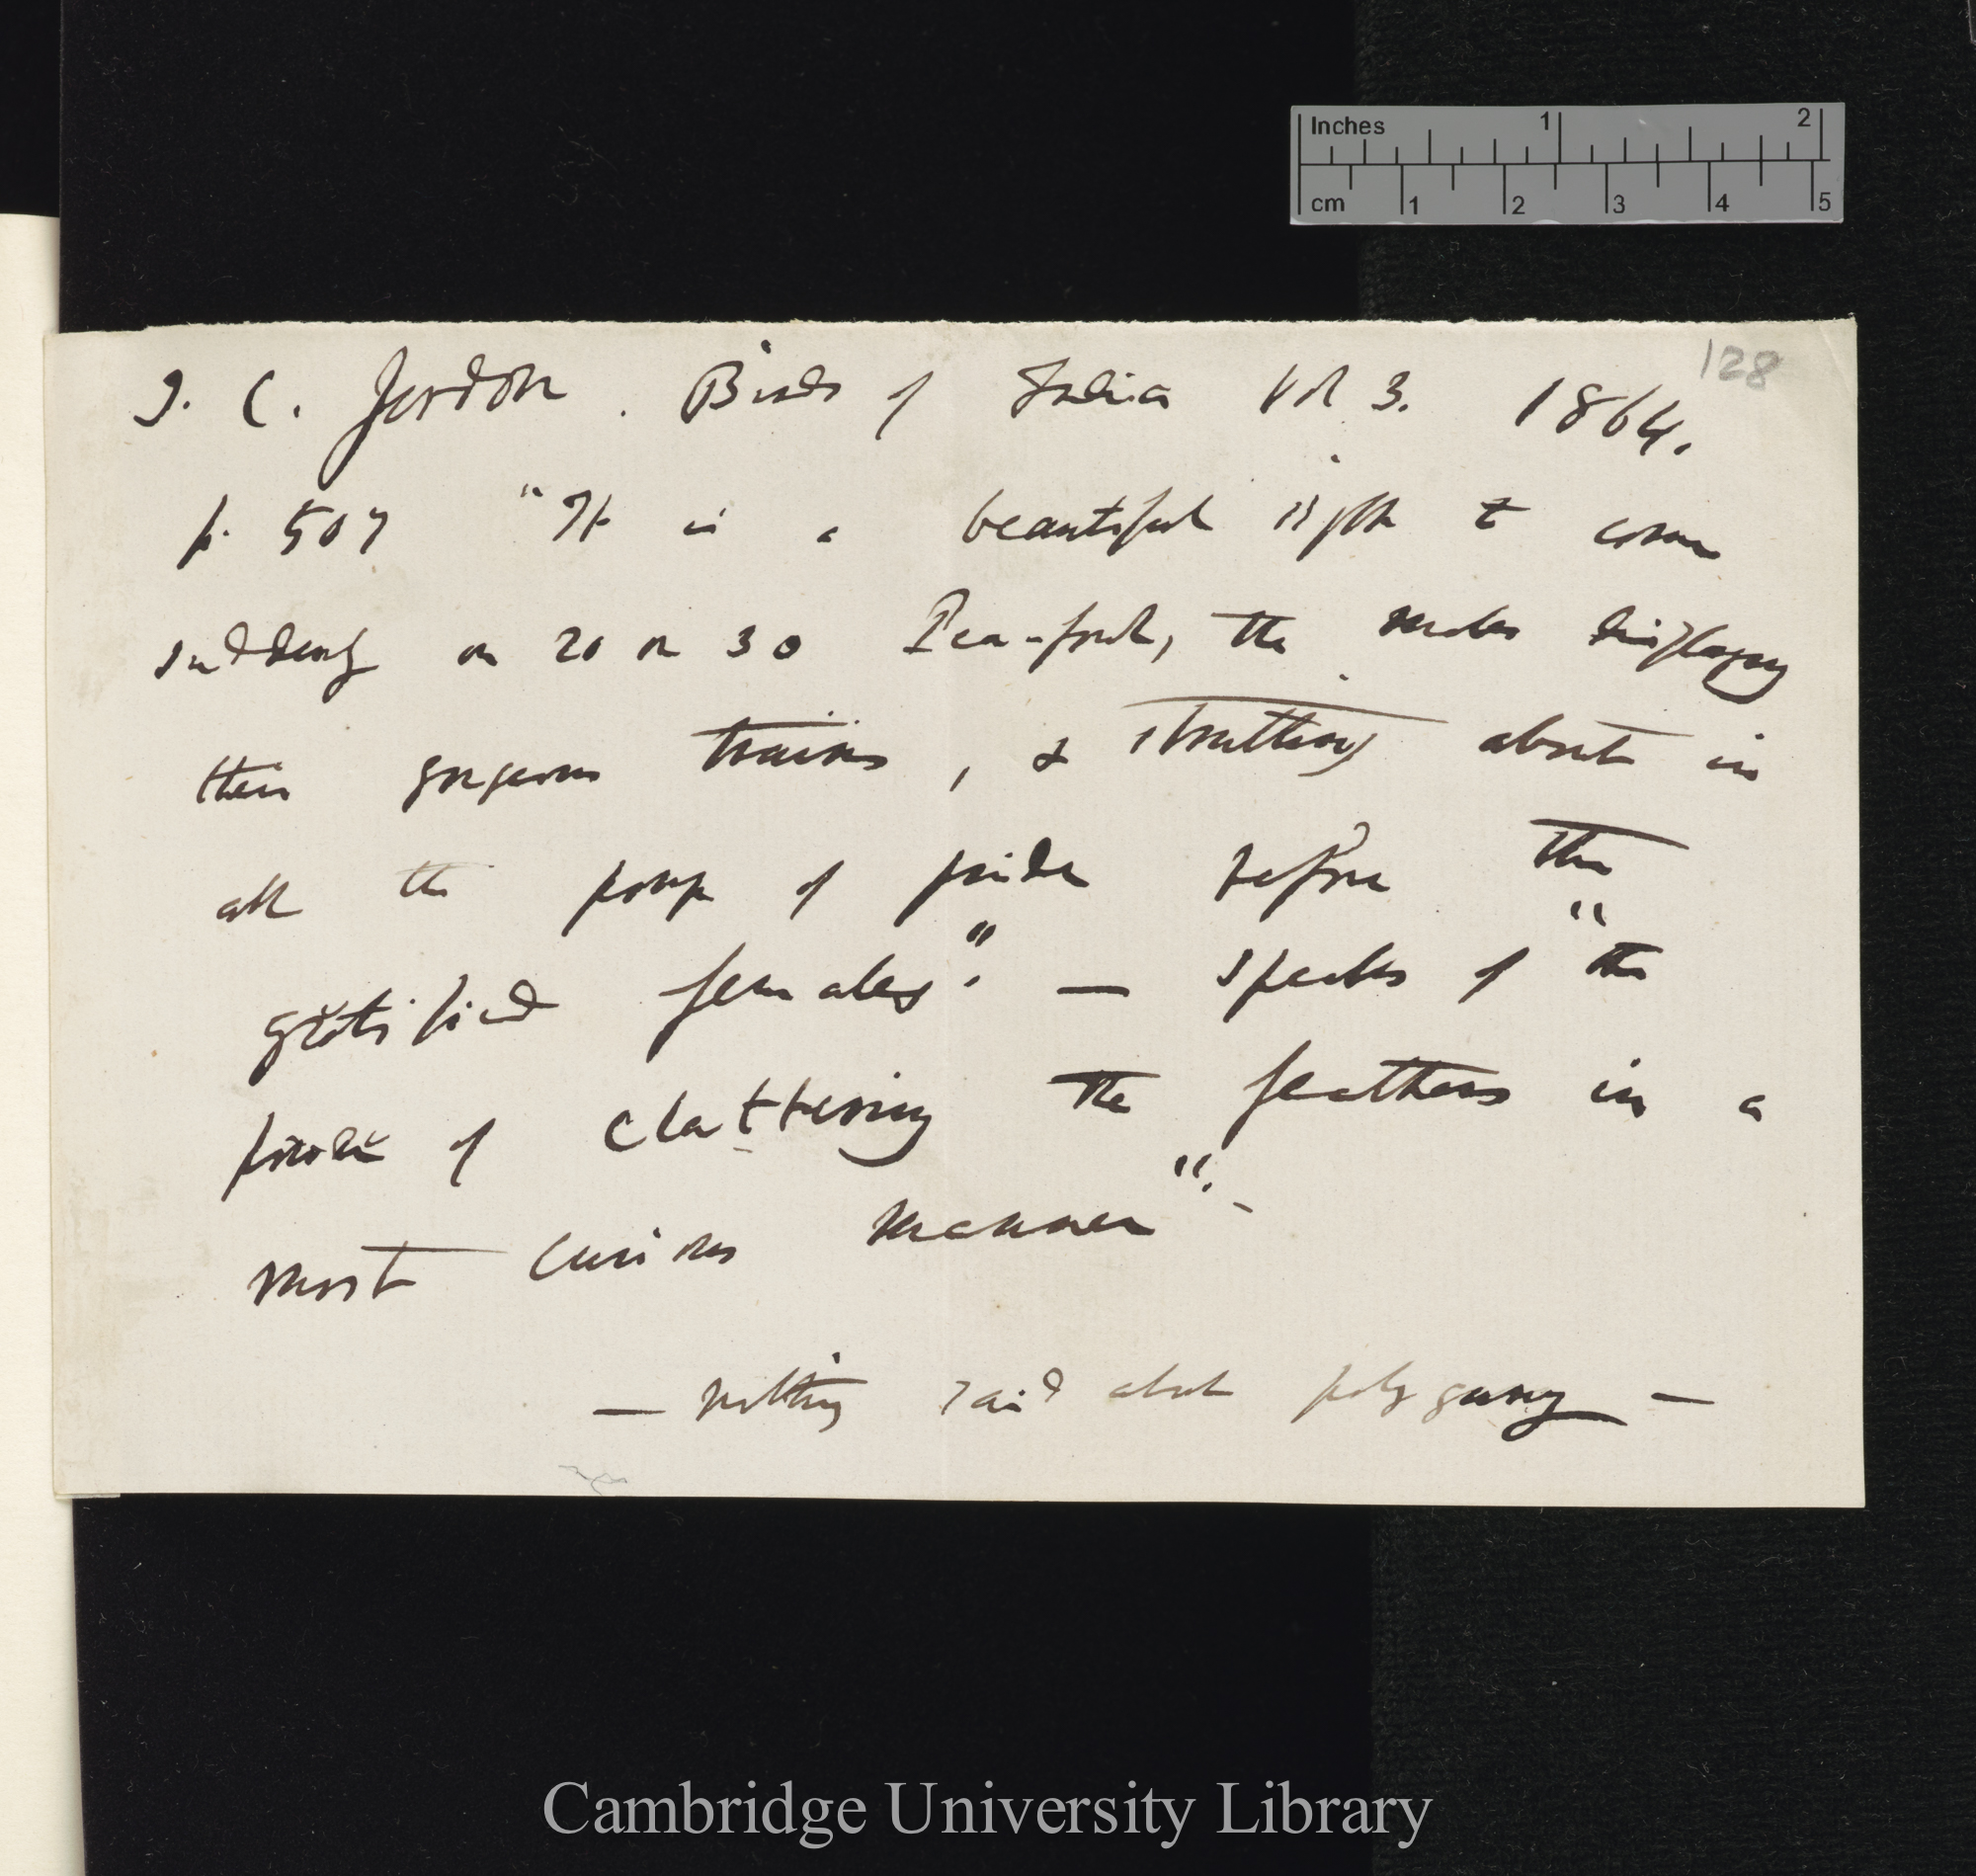 Inches 1 2
cm 1 2 3 4 5
128
T. C. Jerdon. Birds of India Vol 3. 1864.
p. 507 "It is a beautiful sight to come
suddenly on 20 or 30 Pea-fowl, the males displaying
their gorgeous trains, & strutting about in
all the pomp of pride before the
gratified females". — speaks of "the
of clattering the feathers in a
most curious manner". -
— nothing said about polygamy —
Cambridge University Library